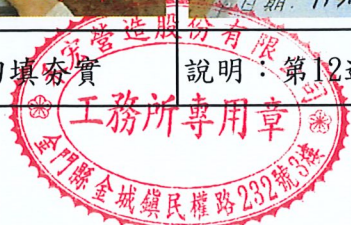 日期:
填夯實
說明:第12
宏營造股份有限公司
工務所專用章
金門縣金城鎮民權路232號3樓